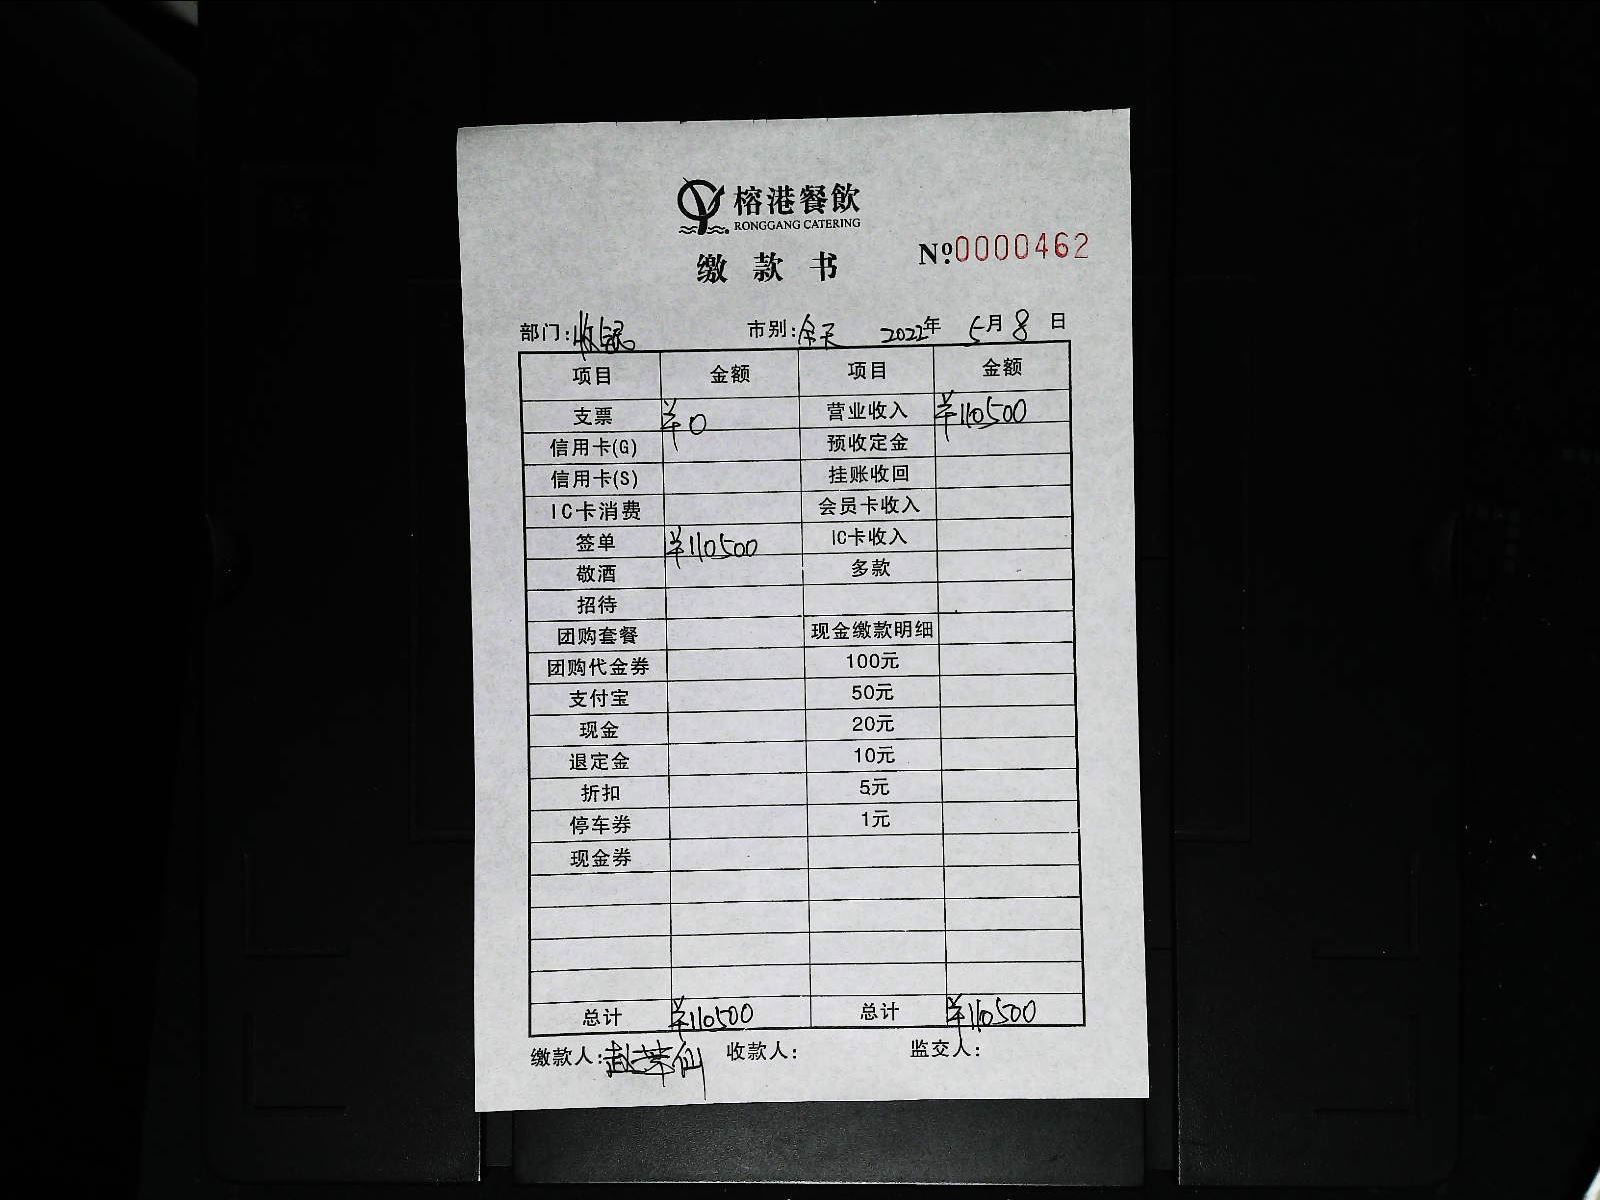 榕港餐飲
RONGGANG CATERING
缴款书
№0000462
部门：收银 市别：全天 2022年 5月 8日
项目 金额 项目 金额
支票 ¥0 营业收入 ¥110500
信用卡(G) 预收定金
信用卡(S) 挂账收回
IC卡消费 会员卡收入
签单 ¥110500 IC卡收入
敬酒 多款
招待
团购套餐 现金缴款明细
团购代金券 100元
支付宝 50元
现金 20元
退定金 10元
折扣 5元
停车券 1元
现金券
总计 ¥110500 总计 ¥110500
缴款人：赵荣仙 收款人： 监交人：